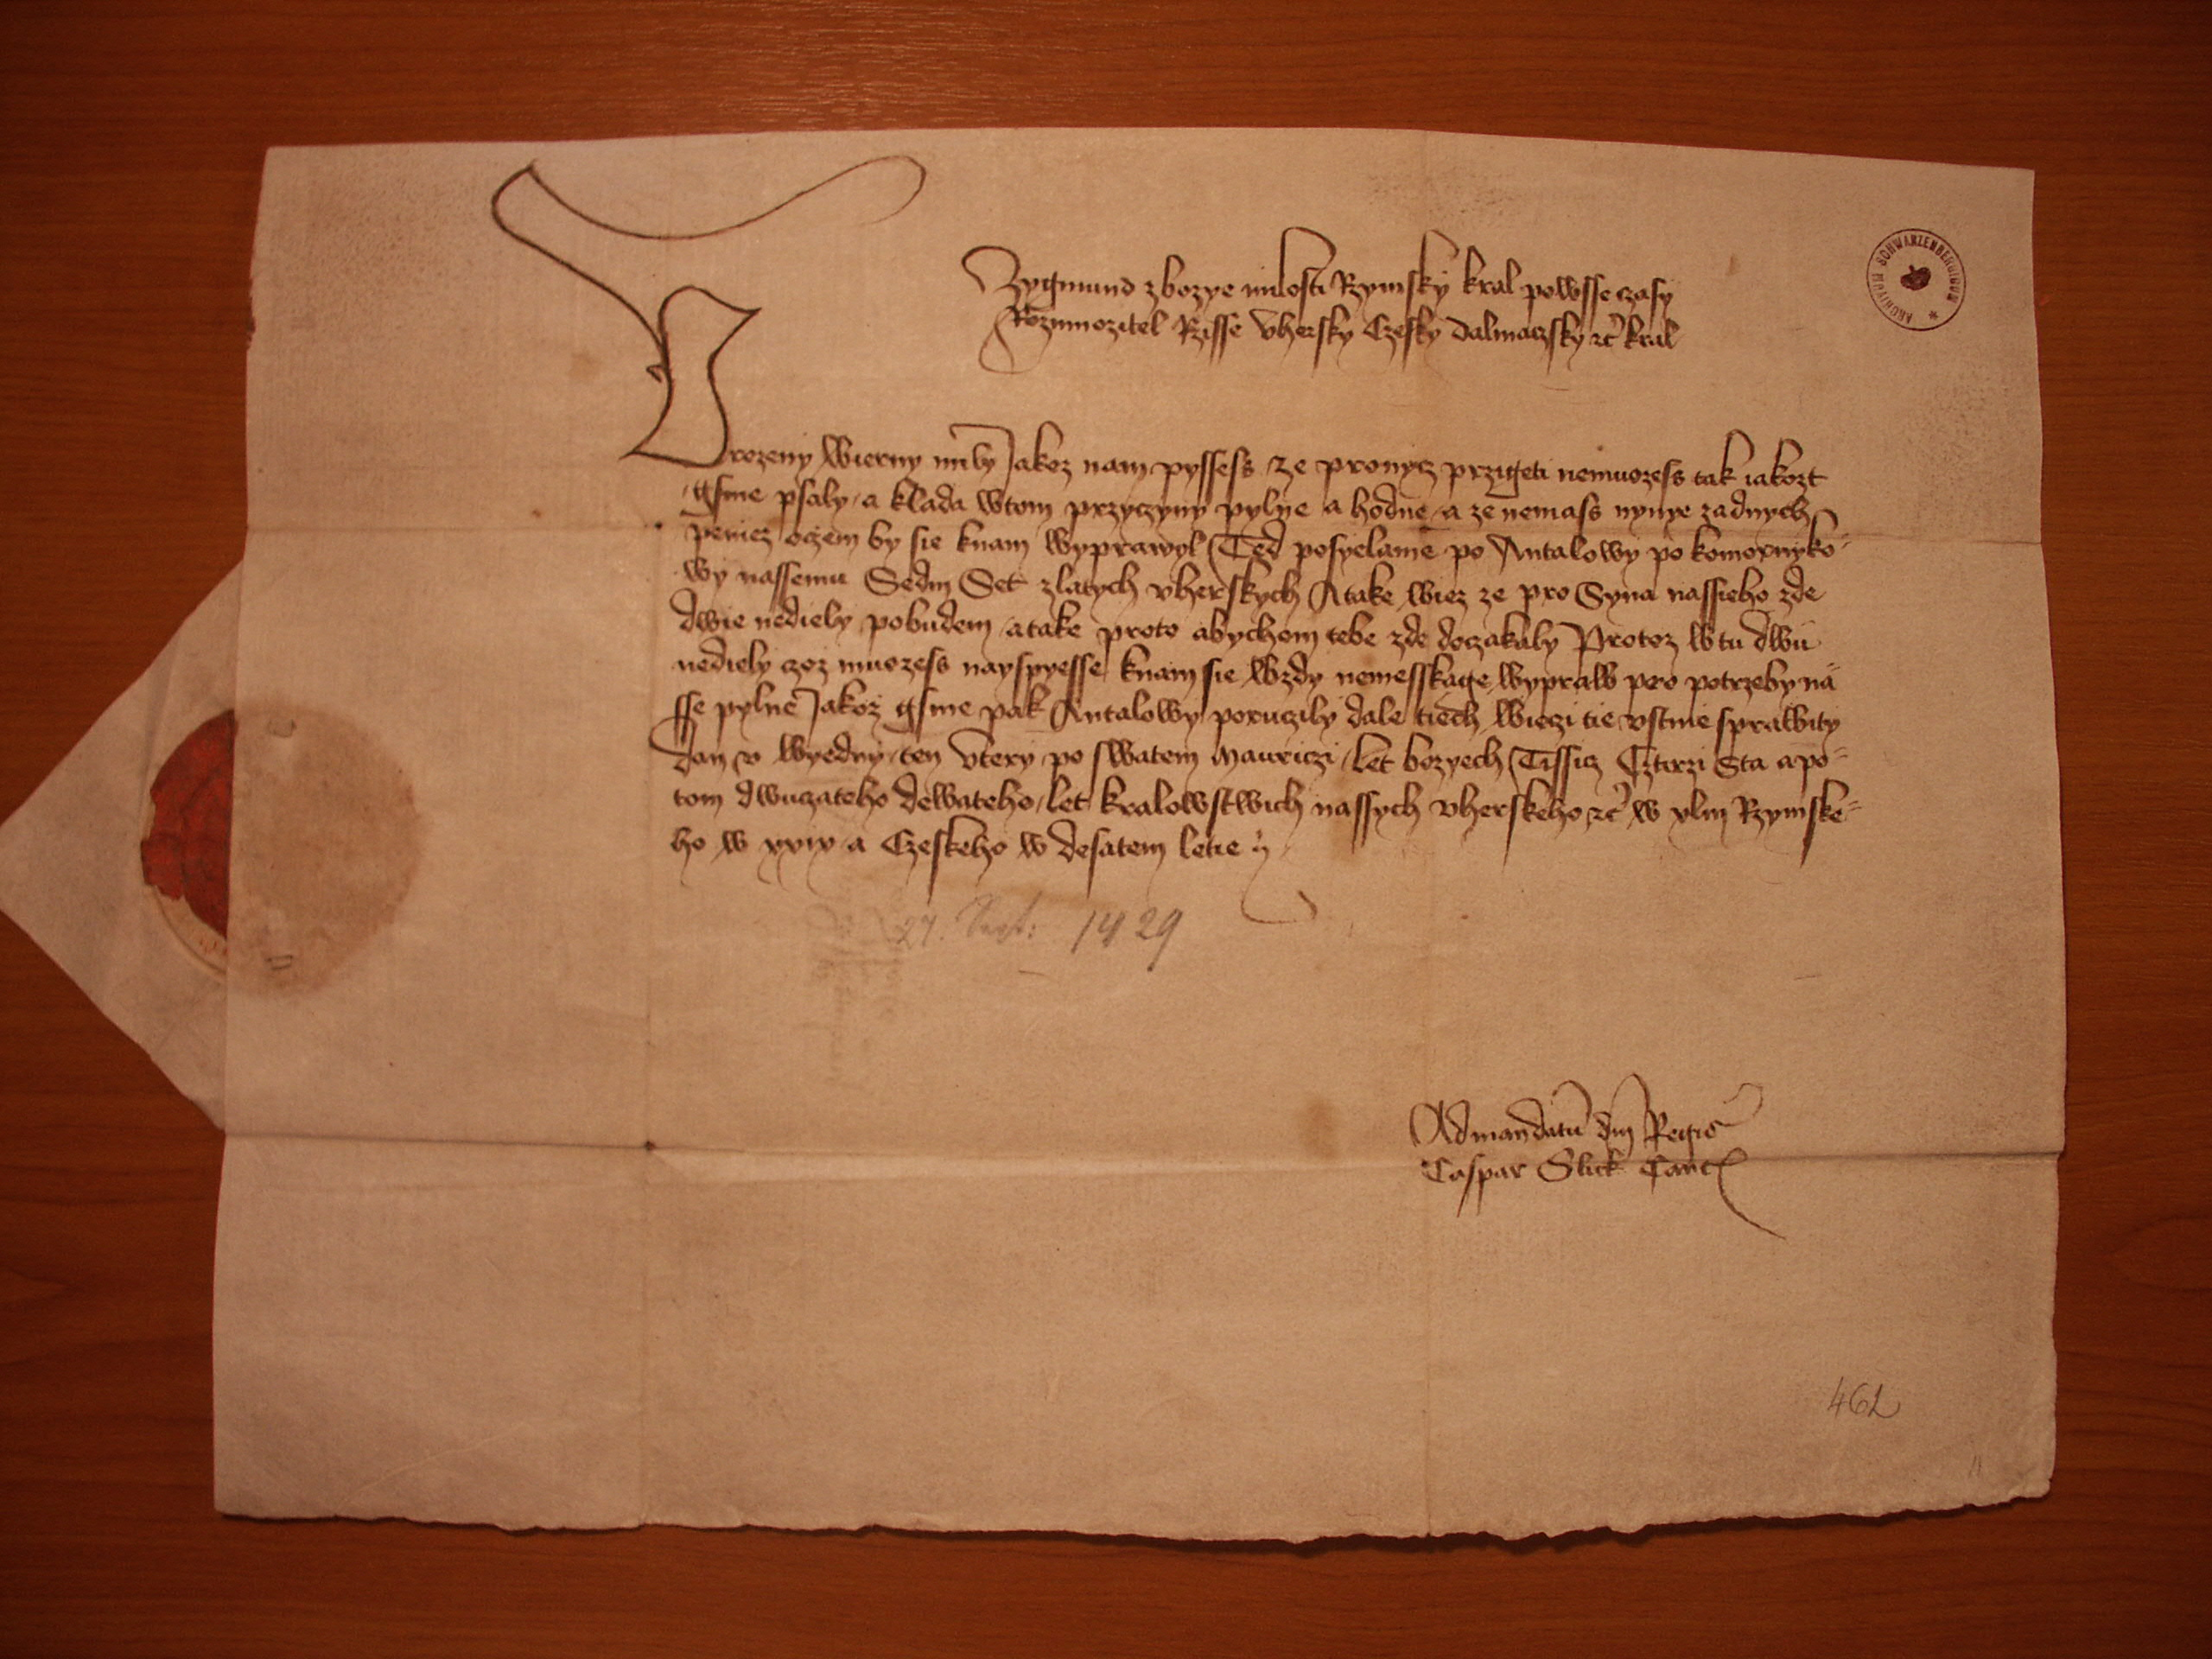 Zygmund z bozye milosti Rzymsky kral powsse czasy
Rozmnozitel Rzisse Vhersky Czesky Dalmaczsky etc kral
ARCHIVUM SCHWARZENBERGICUM *
Urozeny wierny mily Jakoz nam pyssess ze pro nycz przigeti nemuozess tak iakozt
gsme psaly a klada wtom przyczyny pylne a hodne a ze nemass nynye zadnych
peniez oczem by sie knam wyprawyl Ted posyelame po Antalowy po komornyko=
wy nassemu Sedm Set zlatych vherskych A take wiez ze pro Syna nassieho zde
dwie nediely pobudem a take proto abychom tebe zde doczakaly Protoz w tu dwu
nediely czoz muozess nayspyesse knam sie wzdy nemesskage wypraw pro potrzeby na=
sse pylne Jakoz gsme pak Antalowy poruczily dale tiech wieczi tie vstnie sprawity
Dan v Wyedny ten Vtery po swatem Mauriczi Let bozyech Tissicz Cztirzi Sta a po=
tom dwuczateho dewateho let kralowstwich nassych vherskeho etc w xliii Rzymske=
ho w xxix a Czeskeho w desatem letie
27. Sept: 1429
Ad mandatu dni Regis
Caspar Slick Canc
462